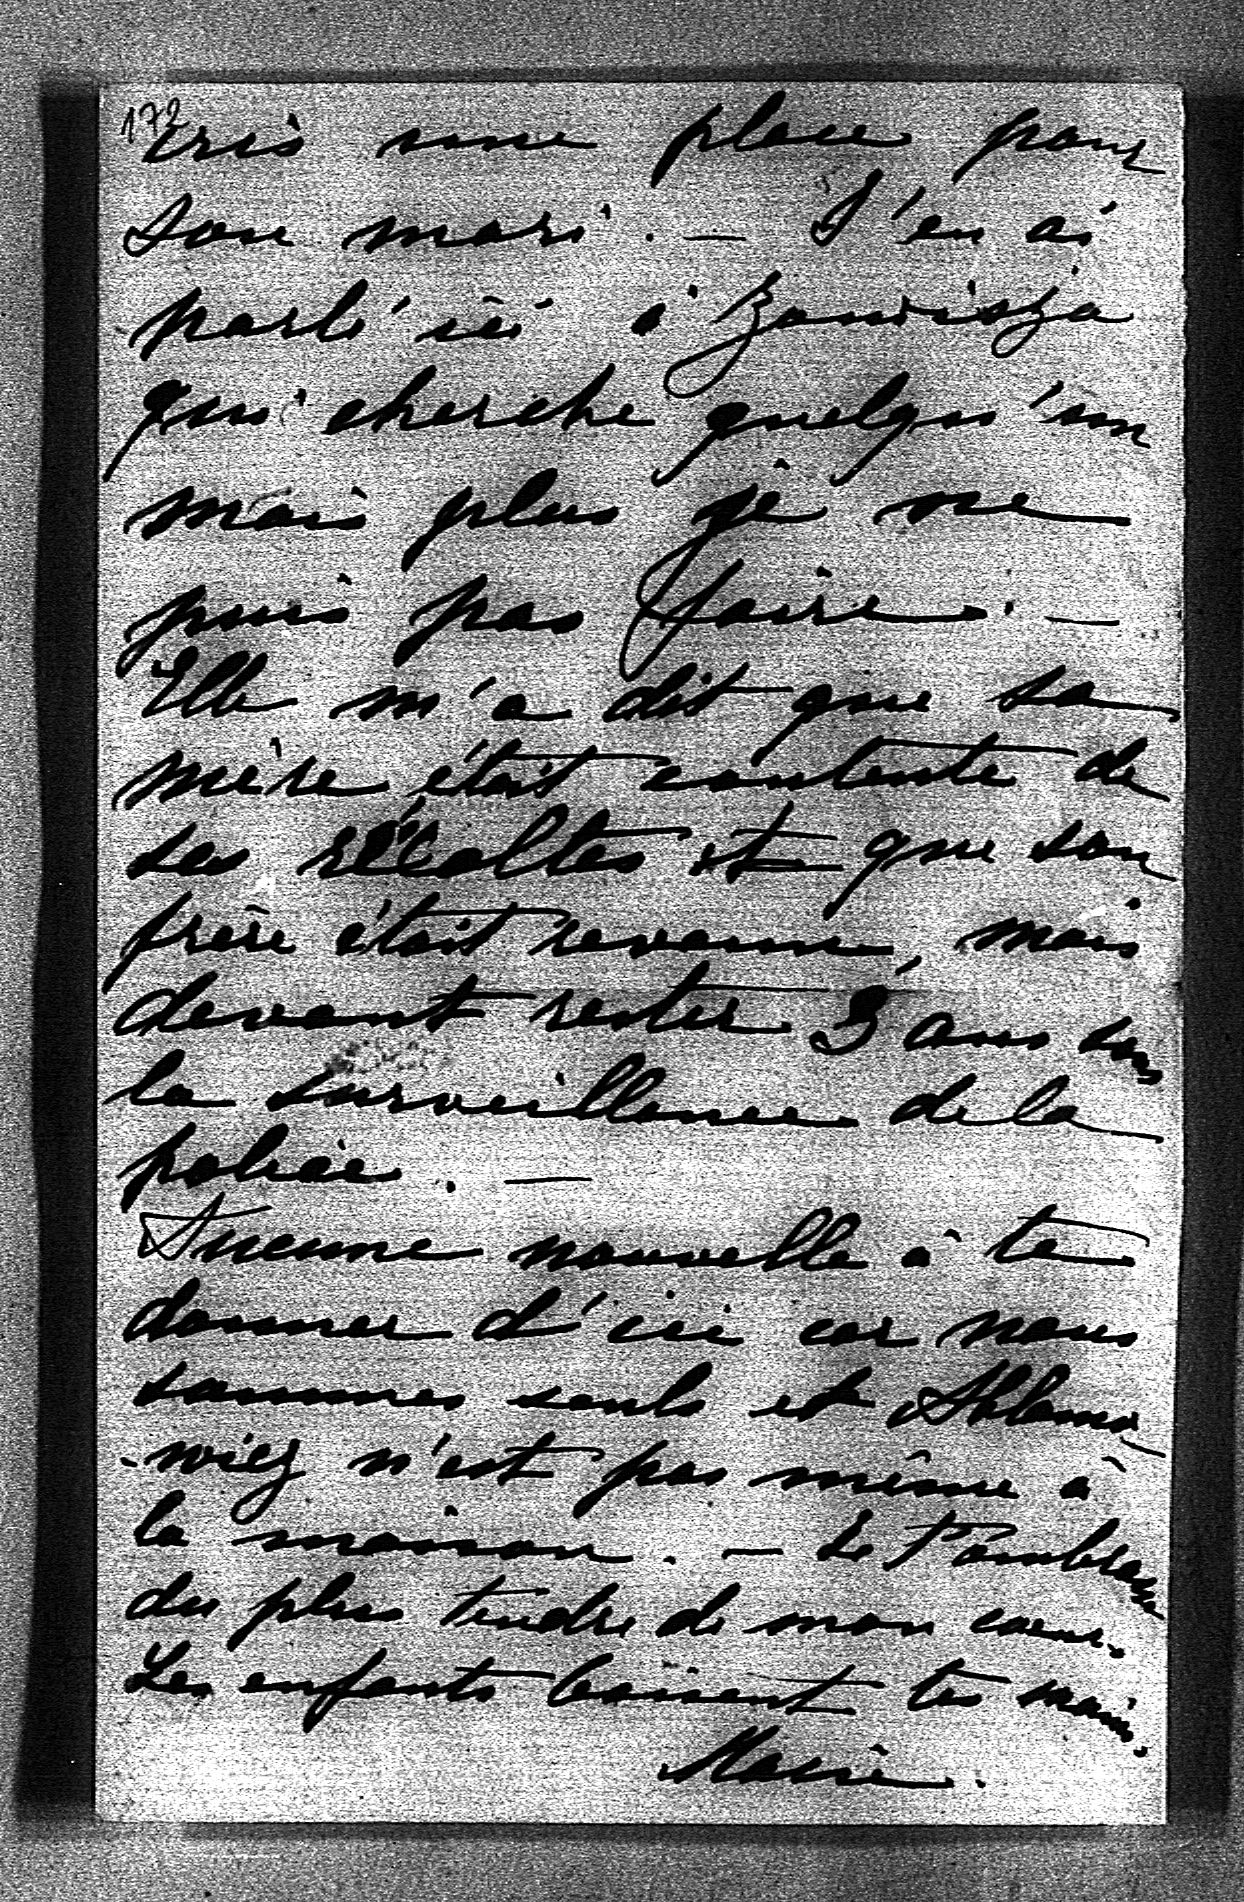 172
très une place pour
son mari. — J'en ai
parlé ici à Zawisza
qui cherche quelqu'un
mais plus je ne
puis pas faire. —
Elle m'a dit que sa
mère était contente de
ses récoltes et que son
frère était revenu, mais
devant rester 3 ans sous
la surveillance de la
police. —
Aucune nouvelle à te
donner d'ici car nous
sommes seuls et Ablamo
-wicz n'est pas même à
la maison. — Je t'embrasse
du plus tendre de mon cœur.
Les enfants baisent tes mains.
Marie.